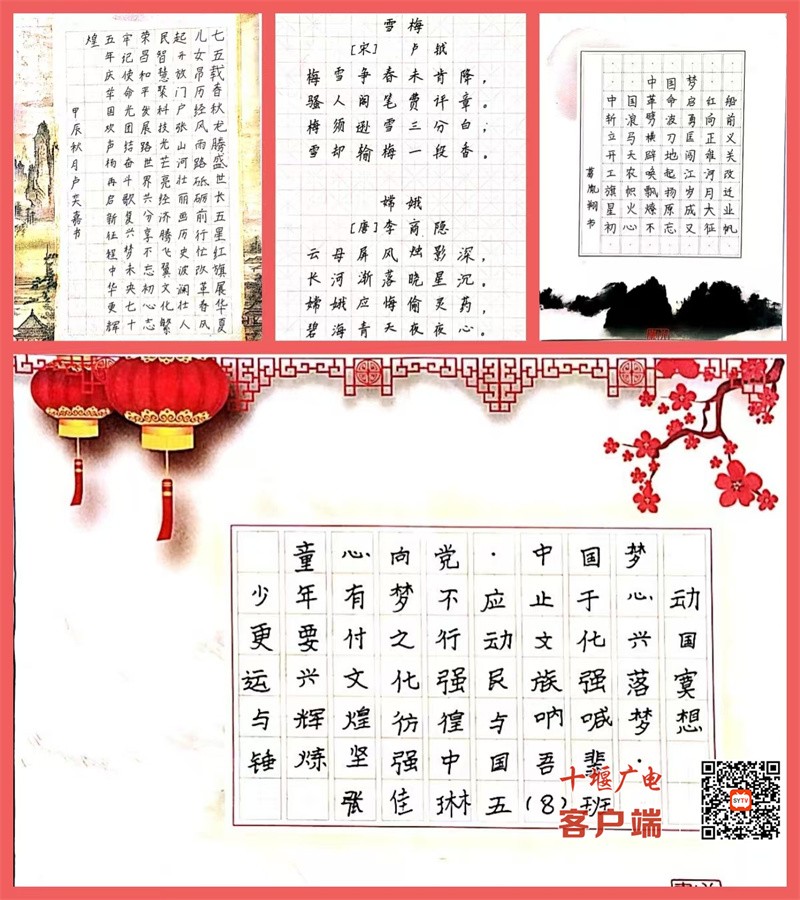 七五载春秋龙腾盛世长五星红旗展华夏
儿女昂历经风雨路砥砺前行忙改革春风
起开放门户张山河壮丽画历史波澜壮人
民智慧聚科技光芒亮经济腾飞翼文化繁
荣昌和平发展路世界共分享不忘初心志
牢记使命光团结奋斗歌复兴梦未央七十
五年庆华国欢声扬再启新征程中华更辉
煌
甲辰秋月卢奕嘉书
雪梅
[宋] 卢钺
梅雪争春未肯降，
骚人阁笔费评章。
梅须逊雪三分白，
雪却输梅一段香。
嫦娥
[唐]李商隐
云母屏风烛影深，
长河渐落晓星沉。
嫦娥应悔偷灵药，
碧海青天夜夜心。
中国梦
中国革命启红船
斩浪劈波勇向前
立马横刀匡正义
开天辟地闯难关
工农唤起江河改
旗帜飘扬岁月迁
星火燎原成大业
初心不忘又征帆
葛胤翔书
童心向党·中国梦
少年有梦不应止于心动
更要付之行动文化兴国
运兴文化强民族强落寞
与辉煌彷徨与呐喊梦想
锤炼坚强中国吾辈·
张佳琳五(8)班
十堰广电
客户端
SYTV